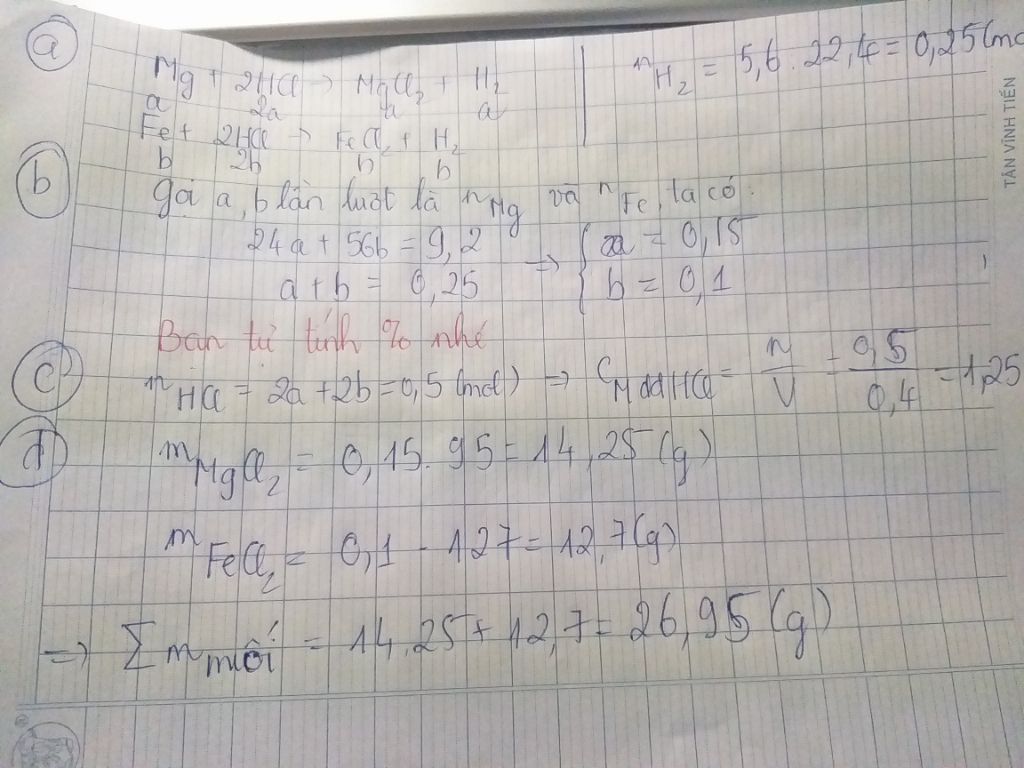 a
Mg + 2HCl → MgCl₂ + H₂
a 2a a a
nH₂ = 5,6 . 22,4 = 0,25 (mo
Fe + 2HCl → FeCl₂ + H₂
b 2b b b
b
Gọi a, b lần lượt là nMg và nFe, ta có:
24a + 56b = 9,2
a + b = 0,25
⇒ { a = 0,15
b = 0,1
Bạn tự tính % nhé
c
nHCl = 2a + 2b = 0,5 (mol) ⇒ CM ddHCl = n/V = 0,5/0,4 = 1,25
d
mMgCl₂ = 0,15 . 95 = 14,25 (g)
mFeCl₂ = 0,1 - 127 = 12,7 (g)
⇒ ∑ mmuối = 14,25 + 12,7 = 26,95 (g)
TÂN VĨNH TIẾN